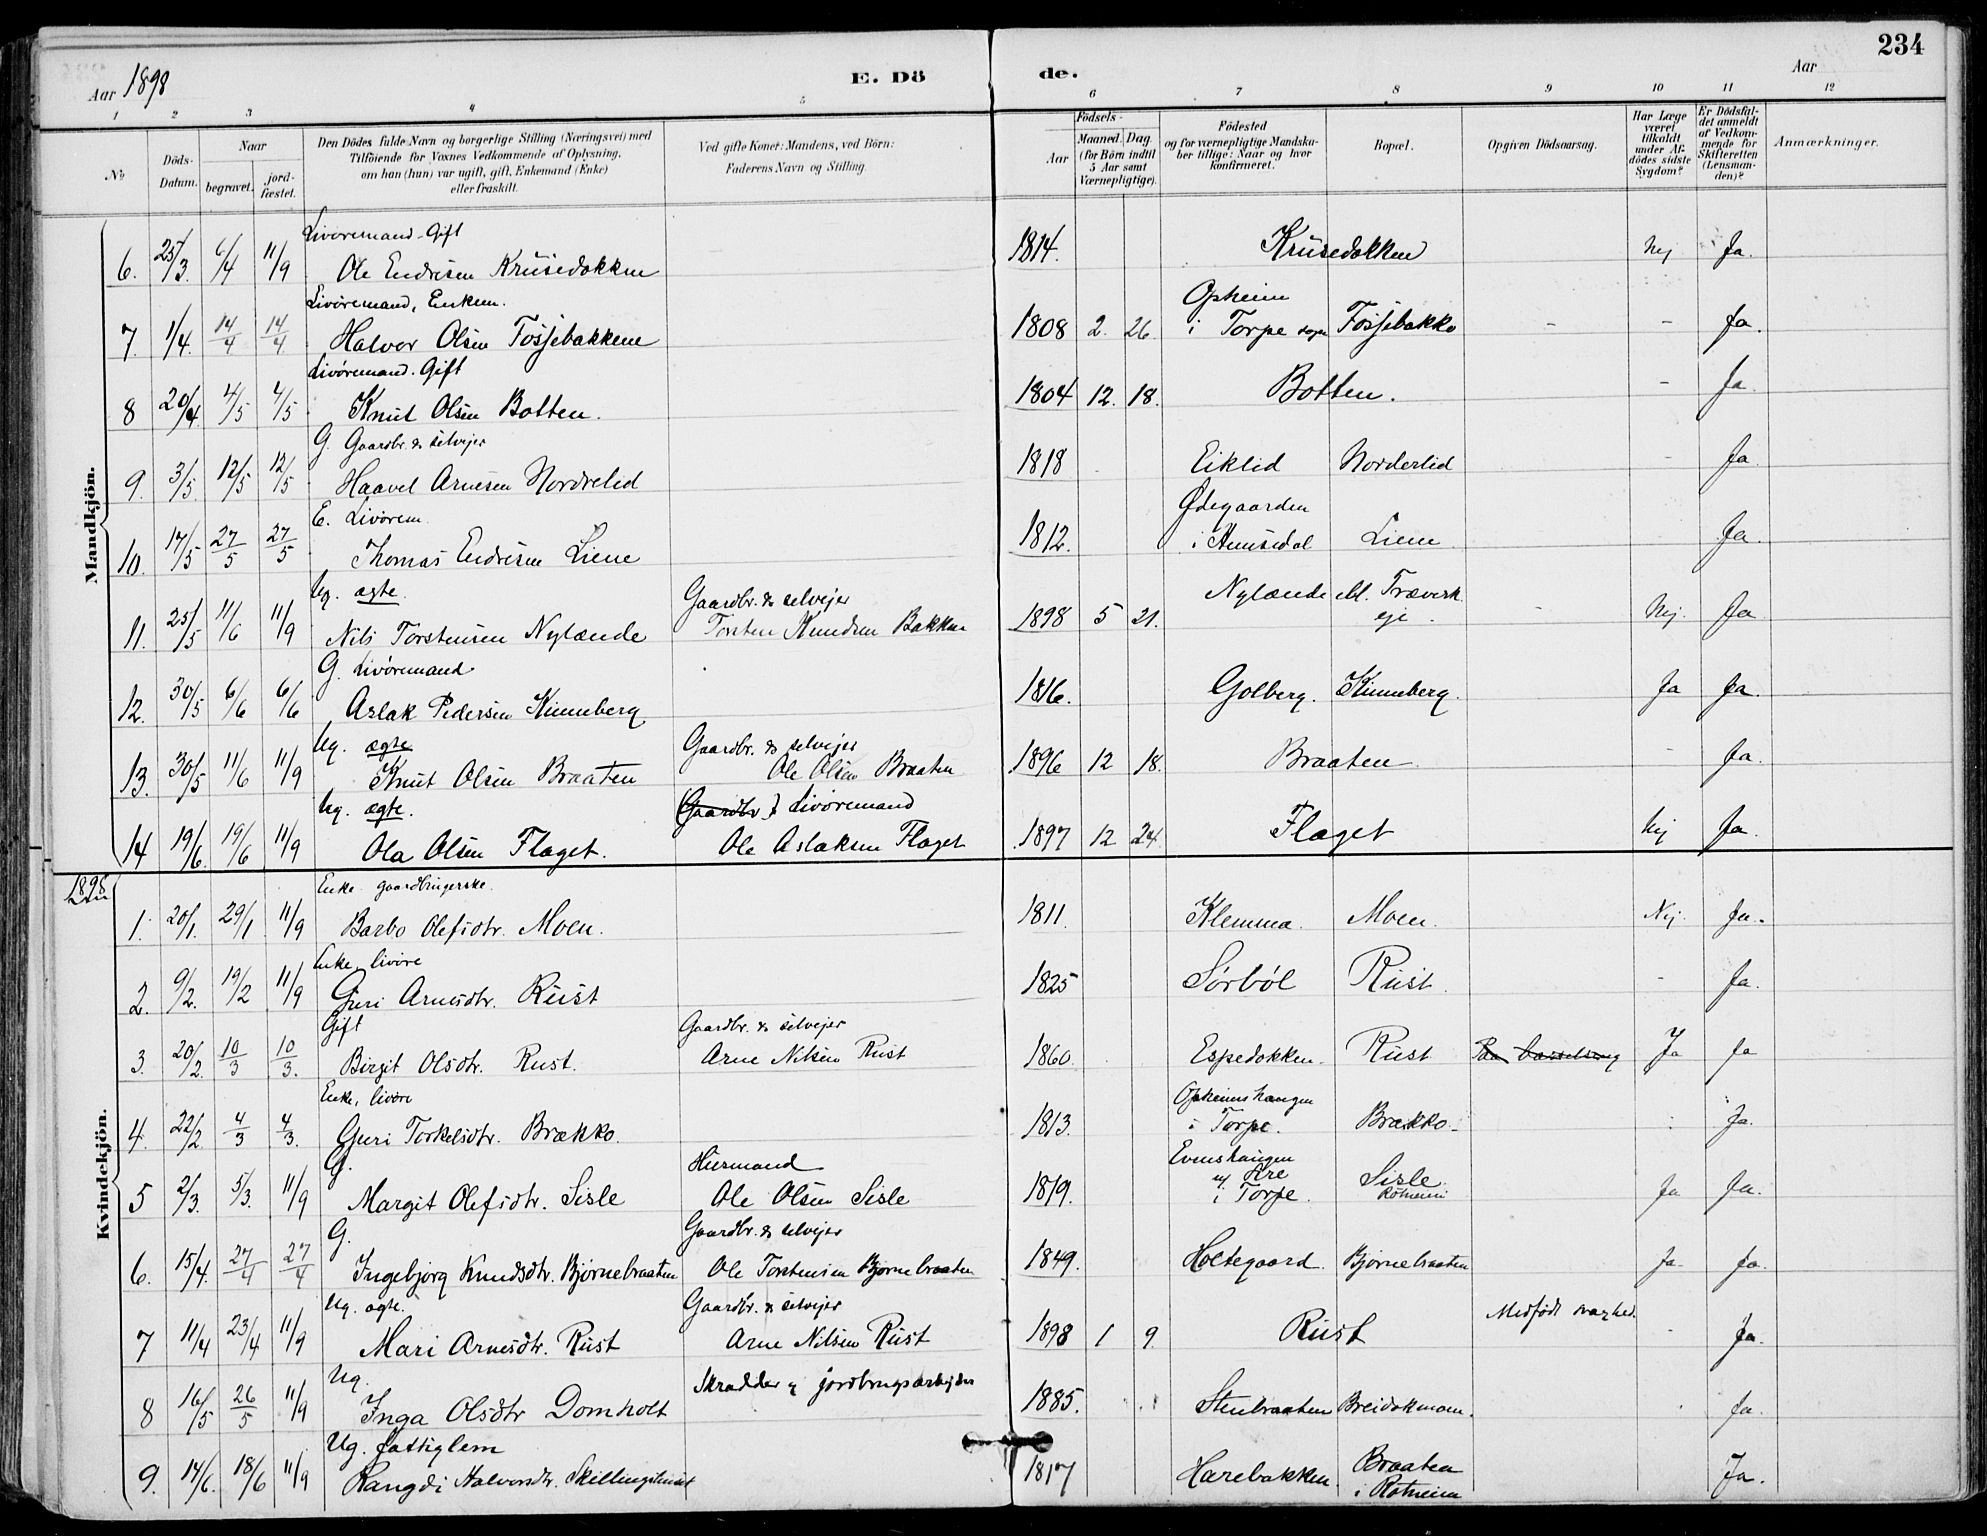 234
Aar 1898
E. Dö
de.
Aar
1 2 3 4 5 6 7 8 9 10 11 12
№
Döds-Datum.
Naar
begravet.
jord-fæstet.
Den Dödes fulde Navn og borgerlige Stilling (Næringsvei) med
Tilföiende for Voxnes Vedkommende af Oplysning,
om han (hun) var ugift, gift, Enkemand (Enke)
eller fraskilt.
Ved gifte Koner: Mandens, ved Börn:
Faderens Navn og Stilling.
Födsels-
Aar
Maaned. Dag.
(for Börn indtil
5 Aar samt
Værnepligtige).
Födested
og for værnepligtige Mandska-
ber tillige: Naar og hvor
konfirmeret.
Bopæl.
Opgiven Dödsaarsag.
Har Læge
været
tilkaldt
under Af-
dödes sidste
Sygdom?
Er Dödsfal-
det anmeldt
af Vedkom-
mende for
Skifteretten
(Lensman-
den)?
Anmærkninger.
Mandkjön.
Livøremand - Gift
6. 25/3. 6/4 11/9 Ole Endresen Krusedokken 1814. Krusedokken Nej Ja.
Livøremand, Enkem.
Opheim
7. 1/4. 14/4 14/4 Halvor Olsen Tossjebakkene 1808 2. 26. i Torpe sogn Fossjebakko - - Ja.
Livøremand. Gift
8 20/4. 4/5 4/5 Knut Olsen Botten. 1804 12. 18. Botten. - Ja.
G. Gaardbr. & selvejer
9. 3/5. 12/5 12/5 Haavel Arnesen Nordrelid 1818 Eiklid Norderlid - Ja
E. Livørem.
Ødegaarden
10. 17/5 27/5 27/5 Thomas Endresen Liene 1812. i Hemsedal Liene Ja.
Ug. ægte. Gaardbr. & selvejer Nylænde Træverk
11. 25/5 11/6 11/9 Nils Torstensen Nylænde Torsten Knudsen Bakken 1898 5 21. eje. Nej. Ja
G. Livøremand
12. 30/5 6/6 6/6 Aslak Pedersen Kinneberg 1816. Golberg. Kinneberg. Ja Ja.
Ug. ægte Gaardbr. & selvejer
13. 30/5 11/6 11/9 Knut Olsen Braaten Ole Olsen Braaten 1896 12 18. Braaten - Ja.
Ug. ægte. (Gaardbr.) Livøremand
14 19/6. 19/6 11/9 Ola Olsen Flaget. Ole Aslaksen Flaget 1897 12 24. Flaget Nej Ja.
1898
Kvindekjön.
Enke gaardbrugerske.
1. 20/1. 29/1 11/9 Barbo Olefsdtr. Moen. 1811. Klemma. Moen. Nej. Ja.
Enke, livøre
2. 9/2. 19/2 11/9 Guri Arnesdtr. Rust 1825 Sørbøl Rust. - Ja.
Gift Gaardbr. & selvejer
3. 20/2. 10/3 10/3. Birgit Olsdtr. Rust. Arne Nilsen Rust 1860. Espedokken. Rust Paa barselseng Ja Ja
Enke, livøre
Opheimshaugen
4. 22/2. 4/3 4/3. Guri Torkelsdtr. Brækko. 1813. i Torpe. Brækko. Ja.
G. Husmand
Evenshaugen
u/ Are
5 2/3. 5/3. 11/9 Margit Olefsdtr. Sisle Ole Olsen Sisle 1819. i Torpe. Sisle Rotneim Ja Ja.
G. Gaardbr. & selvejer
6. 15/4. 27/4 27/4 Ingebjørg Knudsdtr. Bjørnebraaten Ole Torstensen Bjørnebraaten 1849. Holtegaard. Bjørnebraaten Ja Ja.
Ug. ægte. Gaardbr. & selvejer Medfødt svaghed.
7 11/4 23/4 11/9 Mari Arnesdtr. Rust Arne Nilsen Rust 1898 1 9. Rust - Ja.
Ug. Skrædder & jordbrugsarbejder
8 16/5 26/5 11/9 Inga Olsdtr Domholt 1885. Stenbraaten Breidokmoen. Ja.
Ug. fattiglem
9. 14/6. 18/6 11/9 Rangdi Halvorsdtr. Skillingshust 1817 Harebakken. Braaten
i Rotneim Ja.